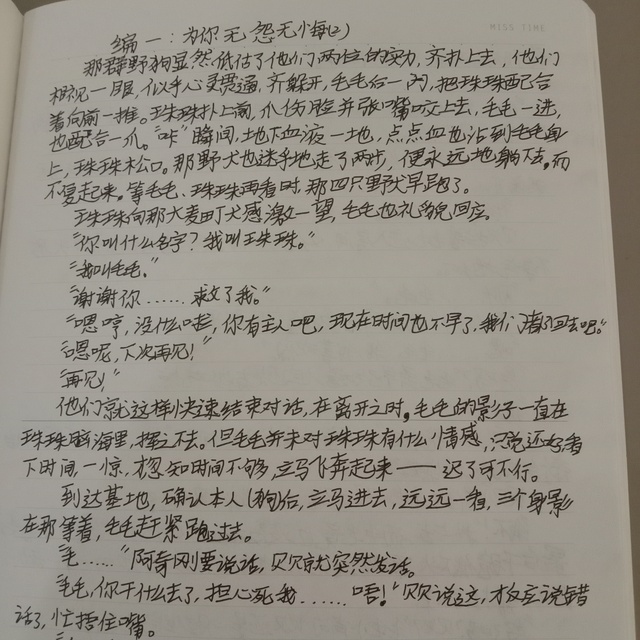 MISS TIME
编一:为你无怨无悔(2)
那群野狗显然低估了他们两位的实力,齐扑上去,他们
相视一眼,似乎心灵贯通,齐躲开,毛毛后一闪,把珠珠配合
着向前一推。珠珠扑上前,爪伤脸并张嘴咬上去,毛毛一进,
也配合一爪。“咔”瞬间,地下血液一地,点点血也沾到毛毛身
上,珠珠松口。那野犬也迷乎地走了两步,便永远地躺下去。而
不复起来。等毛毛、珠珠再看时,那四只野犬早跑了。
珠珠向那大麦町犬感激一望,毛毛也礼貌回应。
“你叫什么名字?我叫珠珠。”
“我叫毛毛。”
“谢谢你……救了我。”
“嗯哼,没什么啦,你有主人吧,现在时间也不早了,我们都回去吧。”
“嗯呢,下次再见!”
“再见!”
他们就这样快速结束对话,在离开之时,毛毛的影子一直在
珠珠脑海里,挥之不去。但毛毛并未对珠珠有什么情感,只说还好看
下时间,一惊,才知时间不够,立马飞奔起来——迟了可不行。
到达基地,确认本人(狗)后,立马进去,远远一看,三个身影
在那等着,毛毛赶紧跑过去。
“毛……”阿奇刚要说话,贝贝就突然发话。
“毛毛,你干什么去了,担心死我……唔!”贝贝说这,才反应说错
话了,忙捂住嘴。